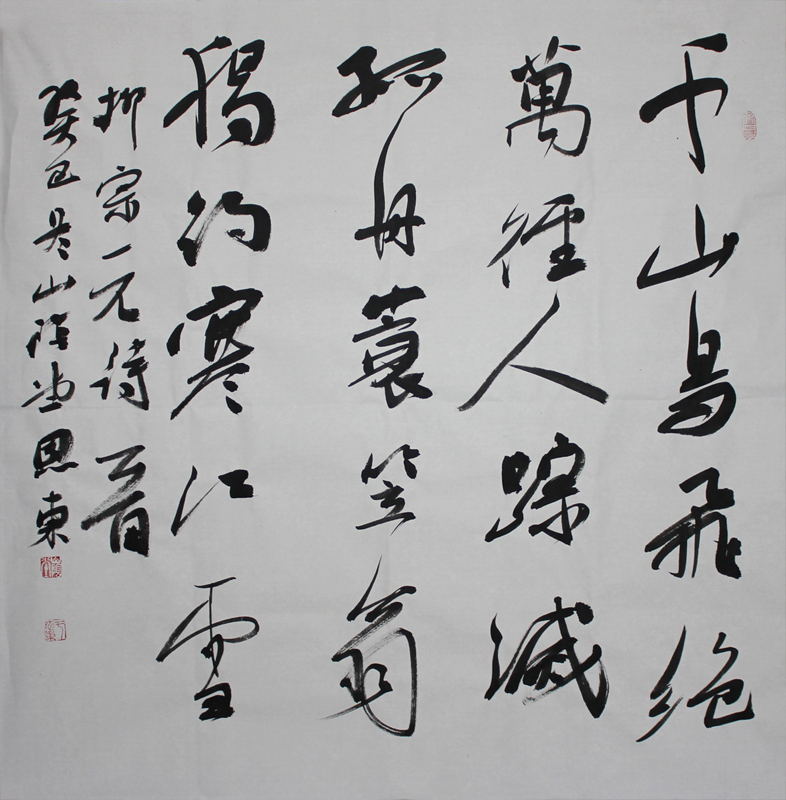 千山鳥飛絶
萬徑人踪滅
孤舟蓑笠翁
獨釣寒江雪
柳宗元詩一首
癸巳 山 堂思東